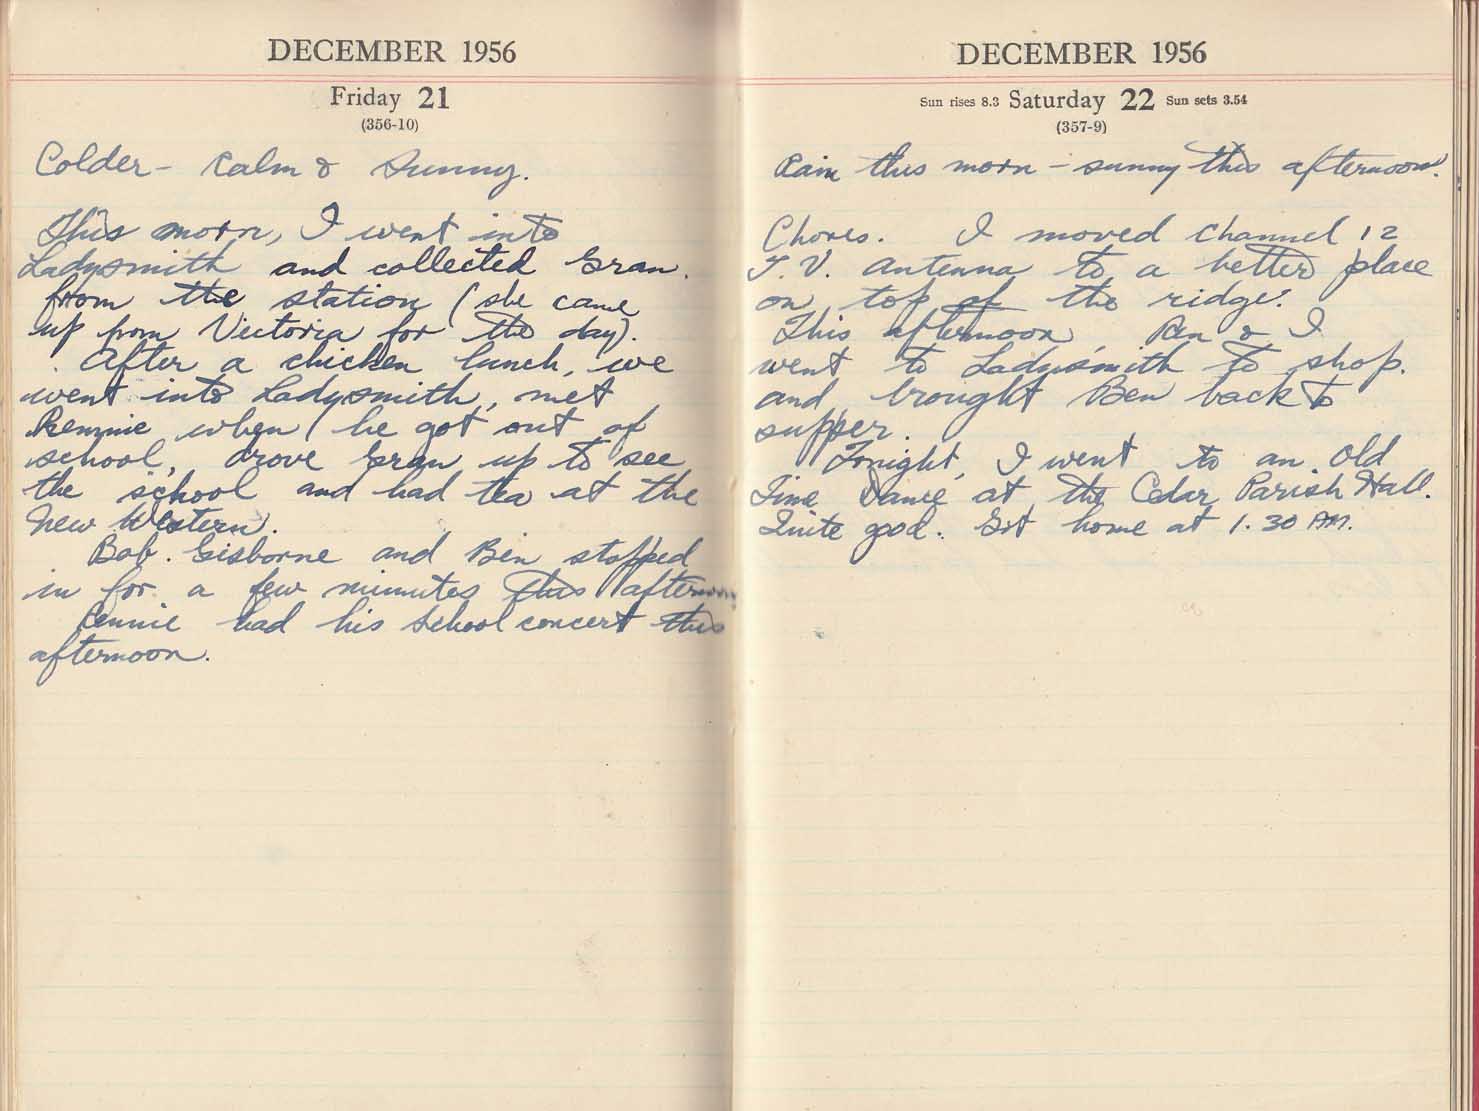 DECEMBER 1956
Friday 21
(356-10)
Colder - Calm & Sunny.
This morn, I went into
Ladysmith and collected Gran.
from the station (she came
up from Victoria for the day).
After a chicken lunch, we
went into Ladysmith, met
Rennie when he got out of
school, drove Gran up to see
the school and had tea at the
New Western.
Bob. Gisborne and Ben stopped
in for a few minutes this afternoon
Rennie had his school concert this
afternoon.
DECEMBER 1956
Sun rises 8.3 Saturday 22 Sun sets 3.54
(357-9)
Rain this morn - sunny this afternoon.
Chores. I moved channel 12
T.V. antenna to a better place
on top of the ridge.
This afternoon, & I
went to Ladysmith to shop.
and brought Ben back to
supper.
Tonight, I went to an Old
Time Dance at the Cedar Parish Hall.
Quite good. Got home at 1.30 AM.